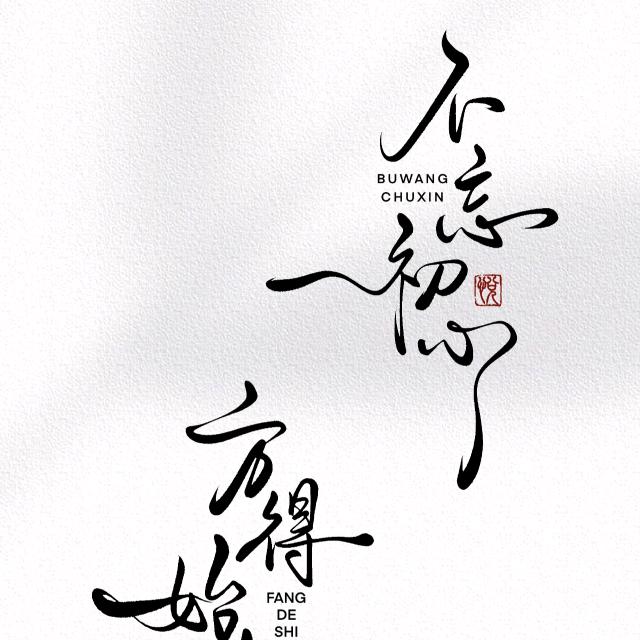 不忘初心
BUWANG
CHUXIN
悦
方得始
FANG
DE
SHI